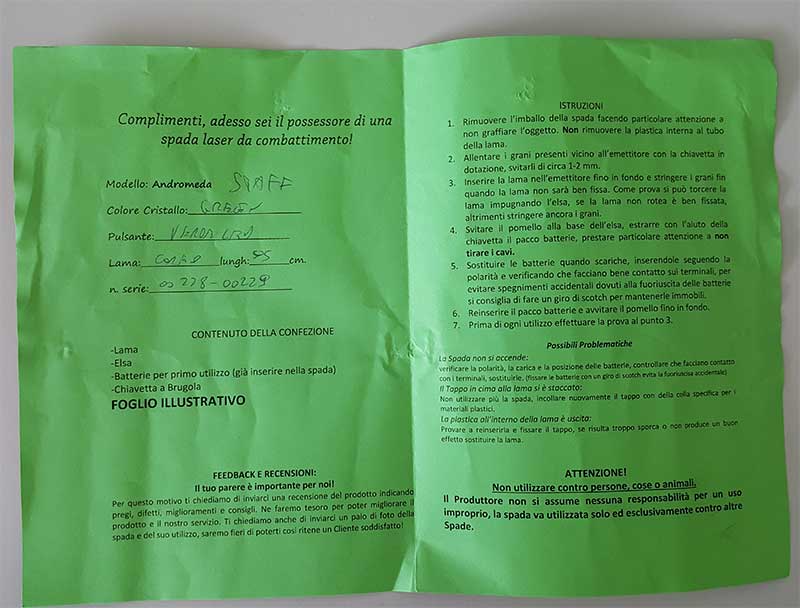 Complimenti, adesso sei il possessore di una
spada laser da combattimento!
Modello: Andromeda STAFF
Colore Cristallo: GREEN
Pulsante:
Lama: lungh: 85 cm.
n. serie: 00228-00229
CONTENUTO DELLA CONFEZIONE
-Lama
-Elsa
-Batterie per primo utilizzo (già inserire nella spada)
-Chiavetta a Brugola
FOGLIO ILLUSTRATIVO
FEEDBACK E RECENSIONI:
Il tuo parere è importante per noi!
Per questo motivo ti chiediamo di inviarci una recensione del prodotto indicando
pregi, difetti, miglioramenti e consigli. Ne faremo tesoro per poter migliorare il
prodotto e il nostro servizio. Ti chiediamo anche di inviarci un paio di foto della
spada e del suo utilizzo, saremo fieri di poterti cosi ritene un Cliente soddisfatto!
ISTRUZIONI
1. Rimuovere l'imballo della spada facendo particolare attenzione a
non graffiare l'oggetto. Non rimuovere la plastica interna al tubo
della lama.
2. Allentare i grani presenti vicino all'emettitore con la chiavetta in
dotazione, svitarli di circa 1-2 mm.
3. Inserire la lama nell'emettitore fino in fondo e stringere i grani fin
quando la lama non sarà ben fissa. Come prova si può torcere la
lama impugnando l'elsa, se la lama non rotea è ben fissata,
altrimenti stringere ancora i grani.
4. Svitare il pomello alla base dell'elsa, estrarre con l'aiuto della
chiavetta il pacco batterie, prestare particolare attenzione a non
tirare i cavi.
5. Sostituire le batterie quando scariche, inserendole seguendo la
polarità e verificando che facciano bene contatto sui terminali, per
evitare spegnimenti accidentali dovuti alla fuoriuscita delle batterie
si consiglia di fare un giro di scotch per mantenerle immobili.
6. Reinserire il pacco batterie e avvitare il pomello fino in fondo.
7. Prima di ogni utilizzo effettuare la prova al punto 3.
Possibili Problematiche
La Spada non si accende:
verificare la polarità, la carica e la posizione delle batterie, controllare che facciano contatto
con i terminali, sostituirle. (fissare le batterie con un giro di scotch evita la fuoriuscisa accidentale)
Il Tappo in cimo alla lama si è staccato:
Non utilizzare più la spada, incollare nuovamente il tappo con della colla specifica per i
materiali plastici.
La plastica all'interno della lama è uscita:
Provare a reinserirla e fissare il tappo, se risulta troppo sporca o non produce un buon
effetto sostituire la lama.
ATTENZIONE!
Non utilizzare contro persone, cose o animali.
Il Produttore non si assume nessuna responsabilità per un uso
improprio, la spada va utilizzata solo ed esclusivamente contro altre
Spade.